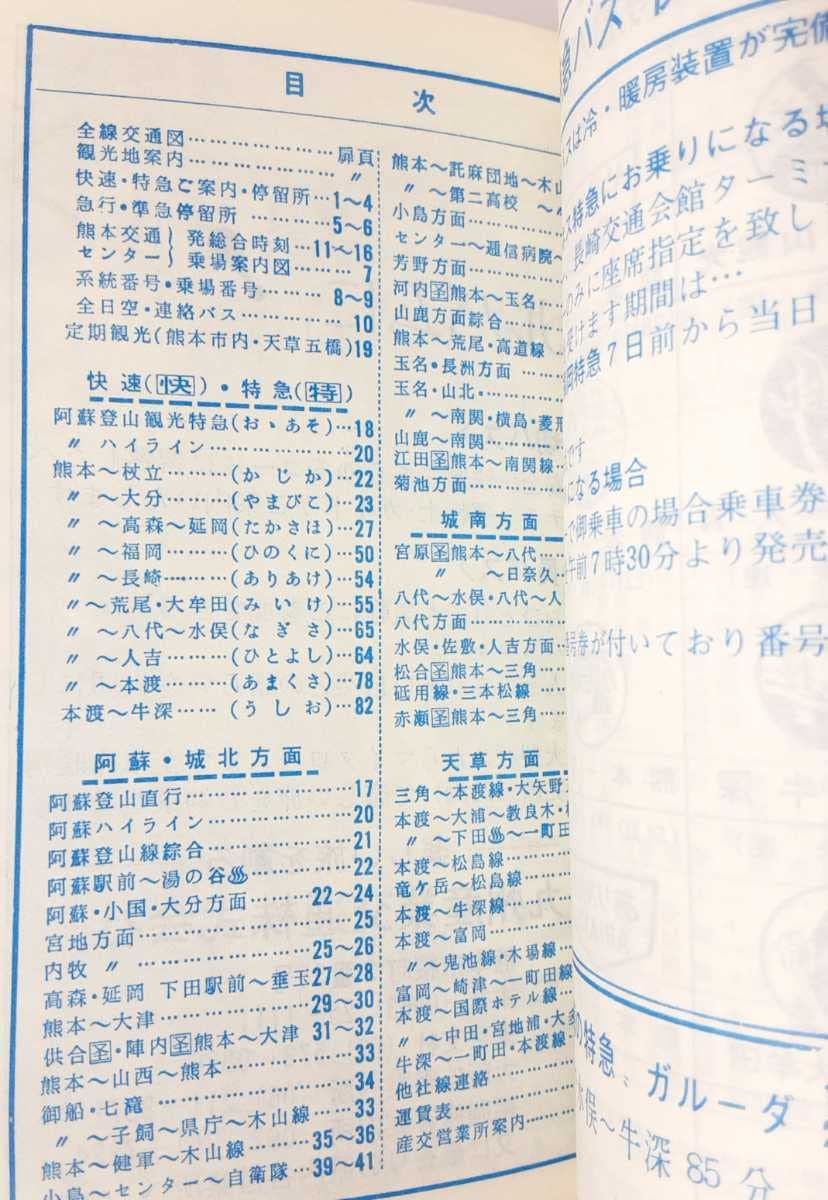 目次
全線交通図………………扉頁
観光地案内…………………〃
快速・特急ご案内・停留所…1〜4
急行・準急停留所…………5〜6
熊本交通｝発総合時刻…11〜16
センター｝乗場案内図………7
系統番号・乗場番号………8〜9
全日空・連絡バス……………10
定期観光(熊本市内・天草五橋)19
快速(快)・特急(特)
阿蘇登山観光特急(おゝあそ)…18
〃 ハイライン………………20
熊本〜杖立………(かじか)…22
〃〜大分………(やまびこ)…23
〃〜高森〜延岡(たかさほ)…27
〃〜福岡………(ひのくに)…50
〃〜長崎………(ありあけ)…54
〃〜荒尾・大牟田(みいけ)…55
〃〜八代〜水俣(なぎさ)…65
〃〜人吉………(ひとよし)…64
〃〜本渡………(あまくさ)…78
本渡〜牛深………(うしお)…82
阿蘇・城北方面
阿蘇登山直行…………………17
阿蘇ハイライン………………20
阿蘇登山線綜合………………21
阿蘇駅前〜湯の谷♨…………22
阿蘇・小国・大分方面……22〜24
宮地方面………………………25
内牧 〃 ………………25〜26
高森・延岡 下田駅前〜垂玉27〜28
熊本〜大津………………29〜30
供合圣・陣内圣熊本〜大津 31〜32
熊本〜山西〜熊本……………33
御船・七滝……………………34
〃〜子飼〜県庁〜木山線……33
熊本〜健軍〜木山線……35〜36
小島〜センター〜自衛隊…39〜41
熊本〜託麻団地〜木山
〃〜第二高校 〜
小島方面………………
センター〜逓信病院〜
芳野方面………………
河内圣熊本〜玉名……
山鹿方面綜合…………
熊本〜荒尾・高道線…
玉名・長洲方面………
玉名・山北・…………
〃〜南関・横島・菱形
山鹿〜南関……………
江田圣熊本〜南関線…
菊池方面………………
城南方面
宮原圣熊本〜八代……
〃〜日奈久…
八代〜水俣・八代〜人
八代方面………………
水俣・佐敷・人吉方面…
松合圣熊本〜三角……
砥用線・三本松線……
赤瀬圣熊本〜三角……
天草方面
三角〜本渡線・大矢野
本渡〜大浦〜教良木・
〃〜下田♨〜一町田
本渡〜松島線…………
竜ケ岳〜松島線………
本渡〜牛深線…………
本渡〜富岡……………
〃〜鬼池線・木場線…
富岡〜崎津〜一町田線
本渡〜国際ホテル線…
〃〜中田・宮地浦・大多
牛深〜一町田・本渡線・
他社線連絡……………
運賃表…………………
産交営業所案内………
急バス
スは冷・暖房装置が完備
ス特急にお乗りになる場
、長崎交通会館ターミ
のみに座席指定を致し
受けます期間は…
岡特急7日前から当日
です
になる場合
で御乗車の場合乗車券
午前7時30分より発売
号券が付いており番号
の特急、ガルーダ
水俣〜牛深 85分